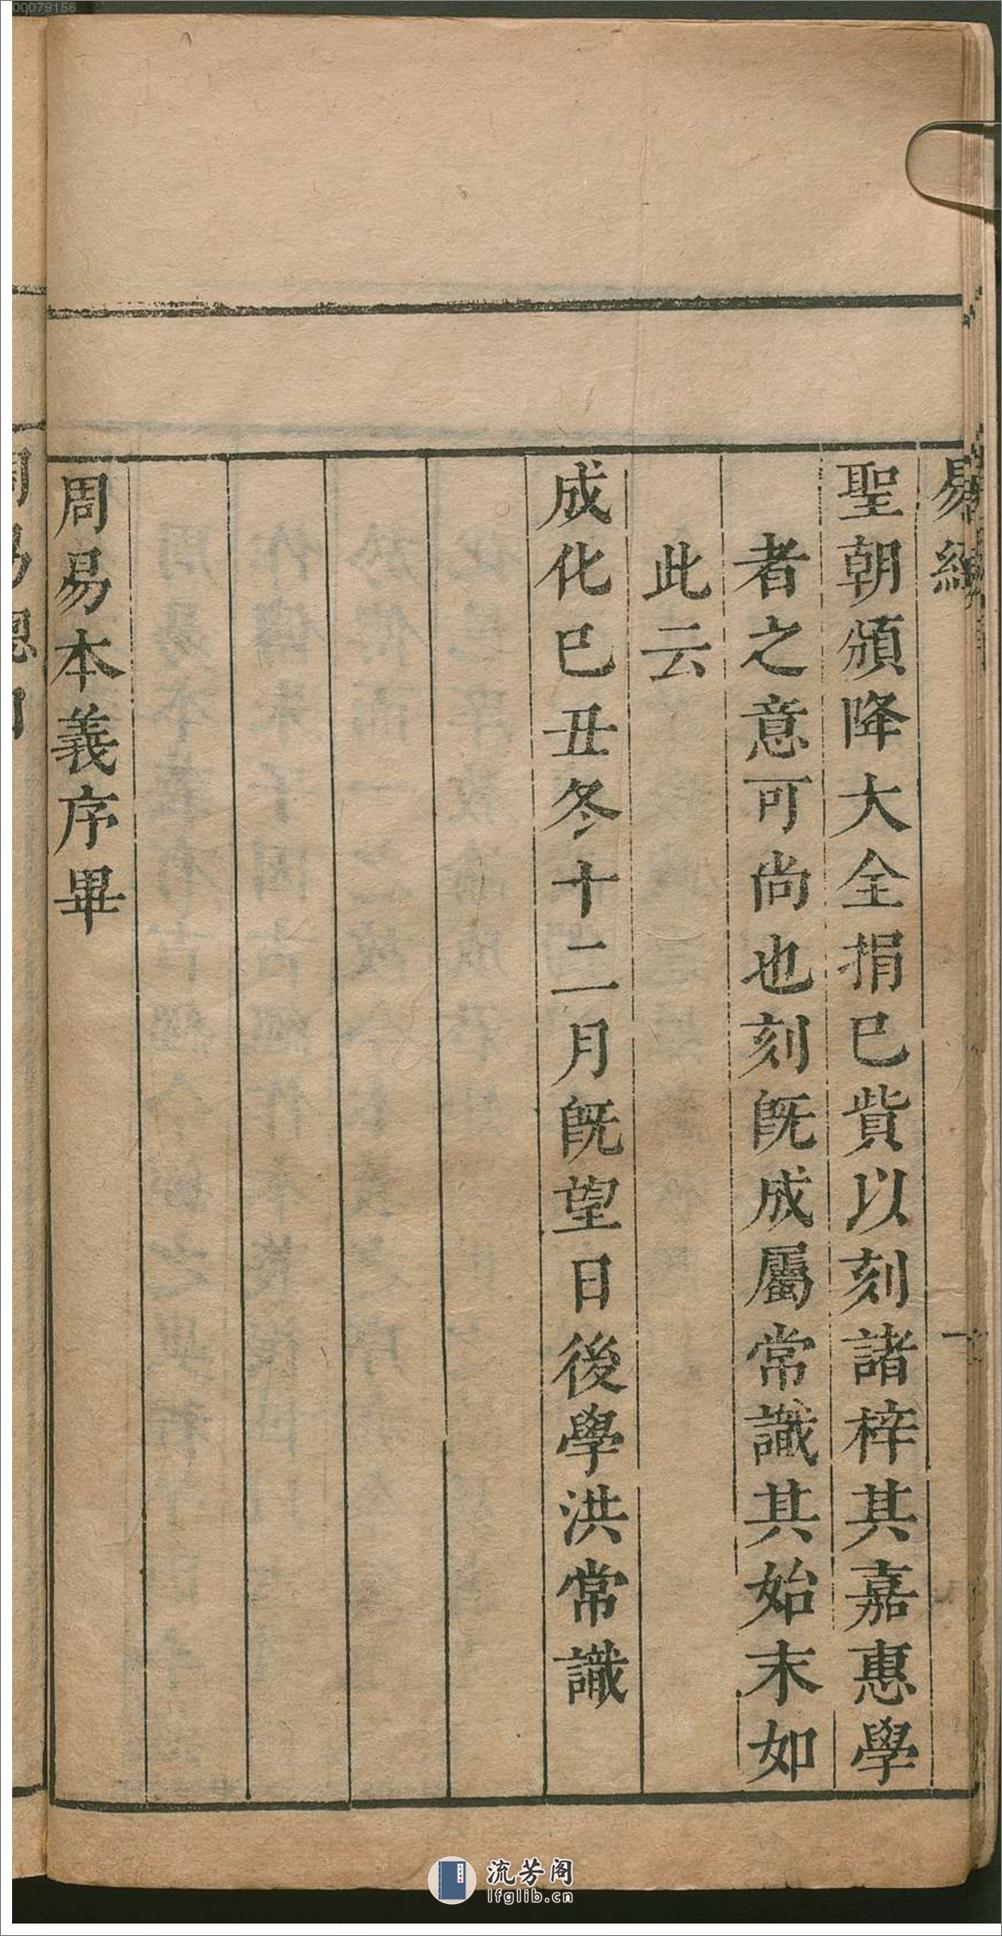 00079156
易經
聖朝頒降大全捐已貲以刻諸梓其嘉惠學
者之意可尚也刻旣成屬常識其始末如
此云
成化巳丑冬十二月旣望日後學洪常識
周易本義序畢
流芳阁
lfglib.cn